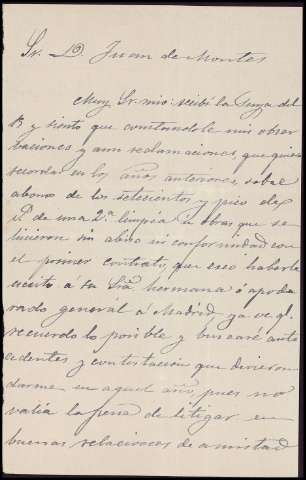 Sr. D. Juan de Montes
Muy Sr. mio: recibí la suya del
13 y siento que constandole mis obser
baciones y aun reclamaciones, que quiero
recordar en los años anteriores, sobre
abono de los setecientos y pico de
de una 2ª limpia u obras, que se
hicieron sin abiso ni conformidad con
el primer contrato, que creo haberlo
escrito a su Sra hermana ó apode
rado general á Madrid ya ve q.
recuerdo lo posible y buscaré ante
cedentes y contestación que dieron
darme en aquel año, pues no
valía la pena de litigar en
buenas relaciones de amistad